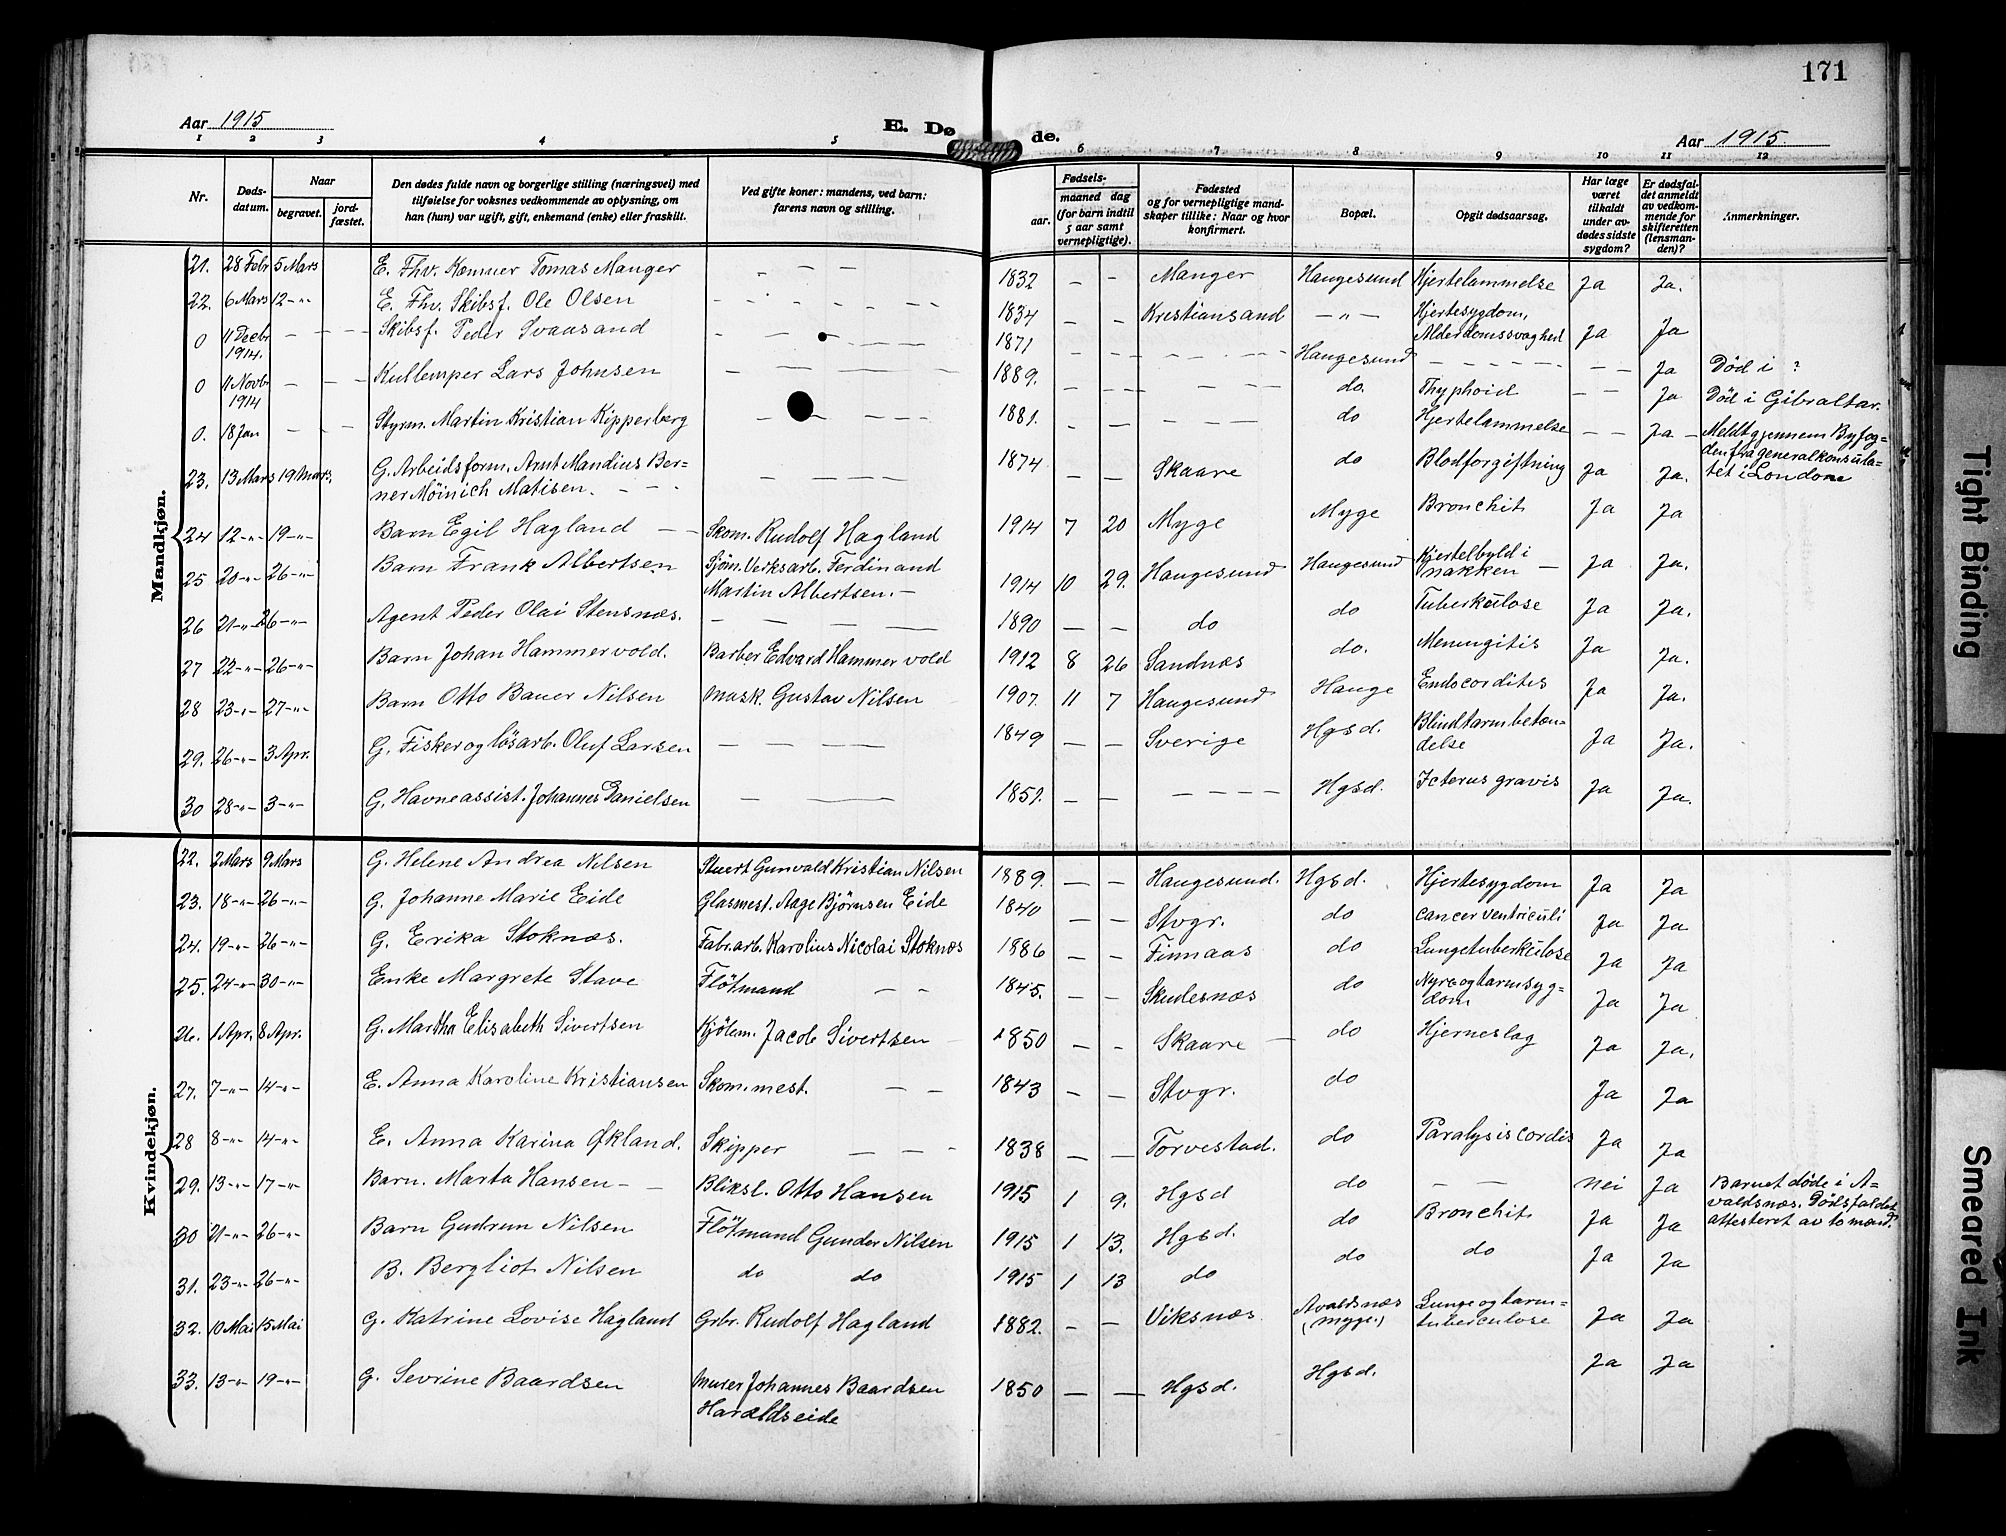 171
Aar 1915
E. Dø de.
Aar 1915.
1 2 3 4 5 6 7 8 9 10 11 12
Nr.
Døds-
datum.
Naar
begravet.
jord-
fæstet.
Den dødes fulde navn og borgerlige stilling (næringsvei) med
tilføielse for voksnes vedkommende av oplysning, om
han (hun) var ugift, gift, enkemand (enke) eller fraskilt.
Ved gifte koner: mandens, ved barn:
farens navn og stilling.
Fødsels-
aar.
maaned dag
(for barn indtil
5 aar samt
vernepligtige).
Fødested
og for vernepligtige mand-
skaper tillike: Naar og hvor
konfirmert.
Bopæl.
Opgit dødsaarsag.
Har læge
været
tilkaldt
under av-
dødes sidste
sygdom?
Er dødsfal-
det anmeldt
av vedkom-
mende for
skifteretten
(lensman-
den)?
Anmerkninger.
Mandkjøn.
21. 28 Febr 5 Mars E. Fhv. Kæmner Tomas Manger - - - 1832 - - Manger Haugesund Hjertelammelse Ja Ja.
22. 6 Mars 12 -"- E. Fhv. Skibsf. Ole Olsen - - - 1834 - - Kristiansand - " - Hjertesygdom,
Alderdomssvaghed Ja Ja
0 11 Decbr
1914. - - - Skibsf. Peder Svaasand - - - 1871 - - - Haugesund - - - Ja Død i ?
0 11 Novbr
1914 - - - Kullemper Lars Johnsen - - - 1889. - - - do. Thyphoid - - Ja Død i Gibraltar.
0. 18 Jan - - - Styrm. Martin Kristian Kipperberg - - - 1881. - - - do Hjertelammelse - - Ja - Meldt gjennem Byfog-
den fra generalkonsula-
tet i London
23. 13 Mars 19 Mars. G. Arbeidsform. Arnt Mandius Ber-
ner Möinich Matisen. - - - 1874 - - Skaare do Blodforgiftning Ja Ja.
24 12 -"- 19 -"- Barn Egil Hagland - Skom. Rudolf Hagland 1914 7 20 Myge Myge Bronchit Ja Ja
25 20 -"- 26 -"- Barn Frank Albertsen Sjöm. Verksarb. Ferdinand
Martin Albertsen. - 1914 10 29. Haugesund Haugesund Kjertelbyld i
nakken - Ja Ja.
26 21 -"- 26 -"- Agent Peder Olai Stensnæs. - - - 1890 - - do do Tuberkulose Ja Ja.
27 22 -"- 26 -"- Barn Johan Hammervold. Barber Edvard Hammervold 1912 8 26 Sandnæs do. Meningitis Ja Ja.
28 23 -"- 27 -"- Barn Otto Bauer Nilsen Mask. Gustav Nilsen 1907. 11 7 Haugesund Hauge Endocorditis Ja Ja.
29. 26 -"- 3 Apr. G. Fisker og løsarb. Oluf Larsen - - - 1849 - - Sverige Hgsd. Blindtarmbetæn-
delse Ja Ja.
30 28 -"- 3 -"- G. Havneassist. Johannes Danielsen - - 1851. - - - Hgsd. Icterus gravis Ja Ja.
Kvindekjøn.
22. 2 Mars 9 Mars G. Helene Andrea Nilsen Stuert Gunvald Kristian Nilsen 1889. - - Haugesund. Hgsd. Hjertesygdom Ja Ja
23. 18 -"- 26 -"- G. Johanne Marie Eide Glasmest. Aage Bjørnsen Eide 1840 - - Stvgr. do cancer ventriculi Ja Ja
24. 19 -"- 26 -"- G. Erika Stoknæs. Fabr.arb. Karolius Nicolai Stoknæs 1886 - - Finnaas do Lungetuberkulose Ja Ja
25. 24 -"- 30 -"- Enke Margrete Stave Flötmand - - 1845. - - Skudesnæs do Nyre og tarmsyg-
dom Ja Ja
26. 1 Apr. 8 Apr. G. Martha Elisabeth Sivertsen Kjölem. Jacob Sivertsen 1850 - - Skaare - do Hjerneslag Ja Ja.
27. 7 -"- 14 -"- E. Anna Karoline Kristiansen Skom.mest. - - 1843 - - Stvgr. do Ja Ja
28 8 -"- 14 -"- E. Anna Karina Økland. Skipper - - - 1838 - - Torvestad. do Paralysis cordis Ja Ja
29. 13 -"- 17 -"- Barn. Marta Hansen - - Bliksl. Otto Hansen 1915 1 9. Hgsd do - - nei Ja Barnet døde i A-
valdsnæs. Dødsfaldet
attesteret av to mænd.
30 21 -"- 26 -"- Barn Gudrun Nilsen Flötmand Gunder Nilsen 1915 1 13. Hgsd. do Bronchit Ja Ja
31. 23 -"- 26 -"- B. Bergliot Nilsen do do 1915 1 13 do do do Ja Ja
32. 10 Mai 15 Mai G. Katrine Lovise Hagland Grbr. Rudolf Hagland 1882. - - Viksnæs Avaldsnæs
(myge.) Lunge og tarm-
tuberculose Ja Ja
33. 13 -"- 19 -"- G. Sevrine Baardsen Murer Johannes Baardsen
Haraldseide 1850 - - Hgsd. Hgsd. Ja Ja
Tight Binding
Smeared Ink